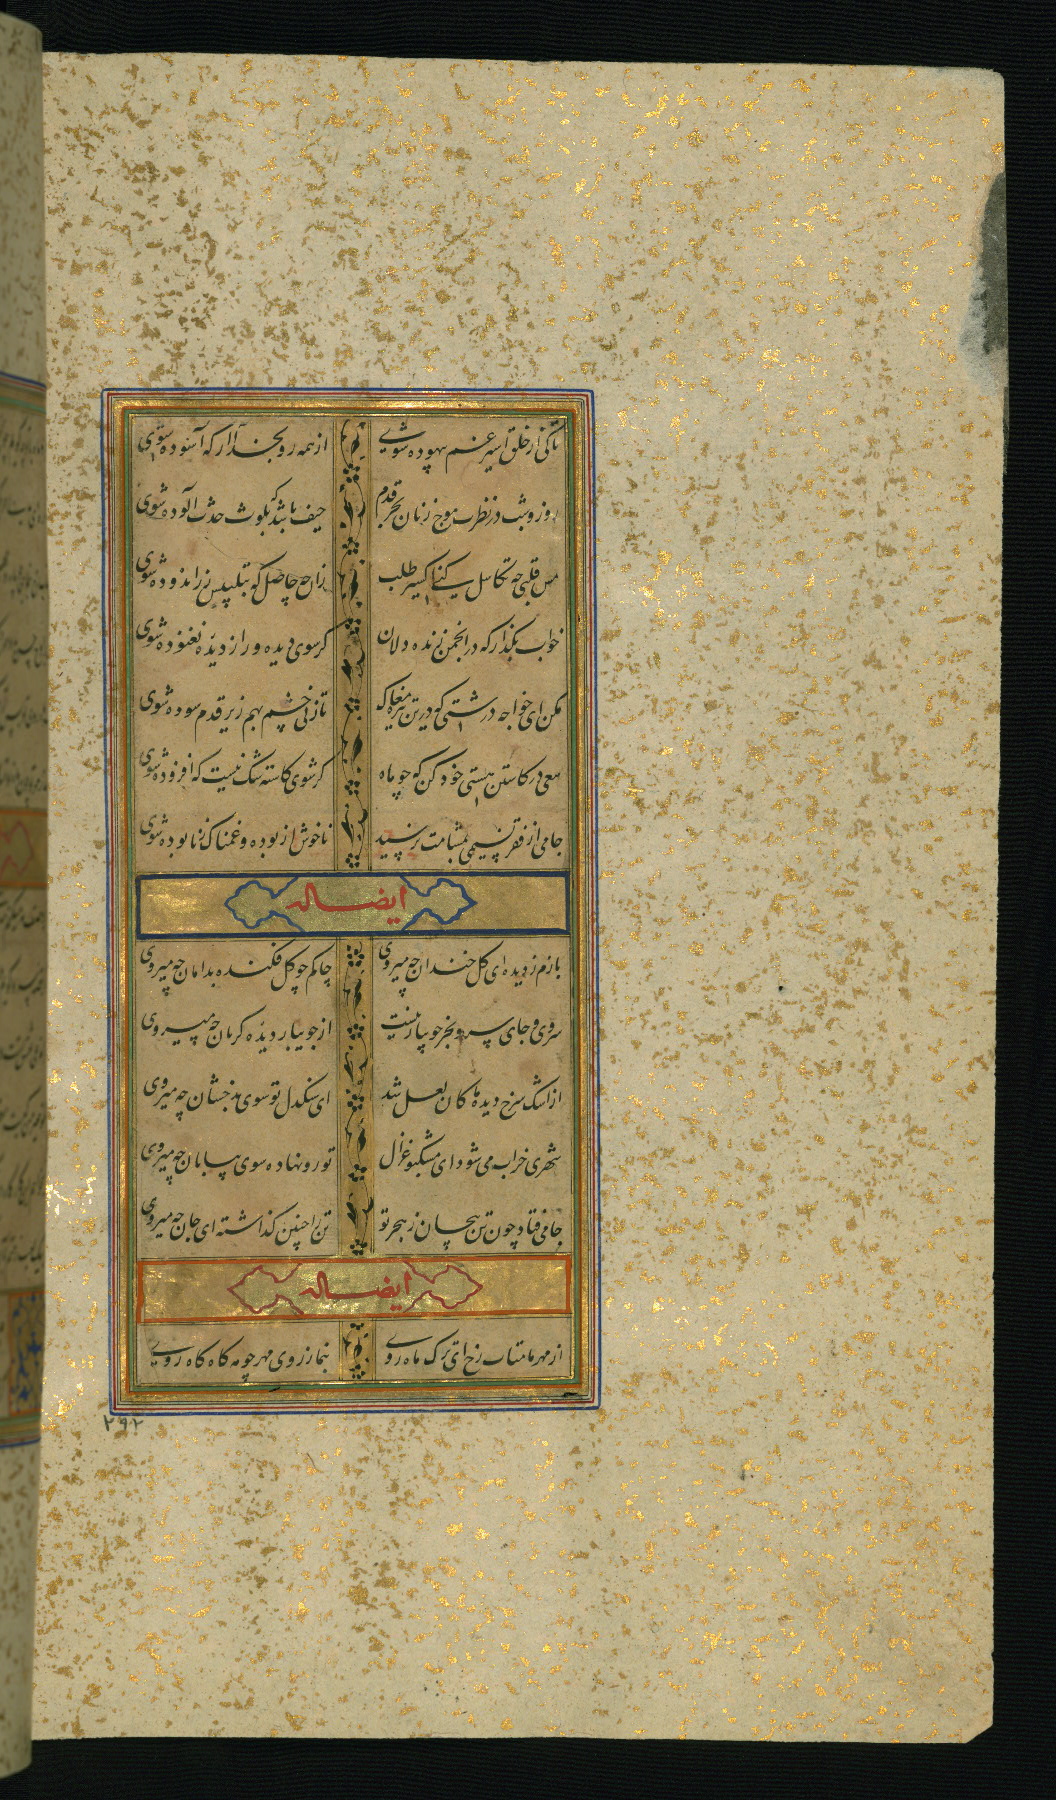 تا کی از خلق اسیر غم بیهوده شوی از همه رو بخدا آر که آسوده شوی
روز و شب در نظرت موج زنان بحر قدم حیف باشد که بلوث حدث آلوده شوی
مس قلبی چه تکاسل کنی اکسیر طلب زان چه حاصل که بتلبیس زراندوده شوی
خواب بگذار که در انجمن زنده دلان گر سوی دیده ور از دیده نغنوده شوی
مکن ای خواجه درشتی که درین تیره مغاک تا زنی چشم بهم زیر قدم سوده شوی
سعی در کاستن هستی خود کن که چو ماه گر شوی کاسته شک نیست که افزوده شوی
جامی از فقر نسیمی بمشامت نرسید ناخوش از بوده و غمناک ز نابوده شوی
ایضا له
بازم ز دیده ای گل خندان چه میروی چاکم چو گل فکنده بدامان چه میروی
سروی و جای سرو بجز جویبار نیست از جویبار دیده گریان چه میروی
از اشک سرخ دیده ما کان لعل شد ای سنگدل تو سوی بدخشان چه میروی
شهری خراب می شود ای مشکبو غزال تو رو نهاده سوی بیابان چه میروی
جامی فتاد چون تن بیجان ز هجر تو تن را چنین گذاشته ای جان چه میروی
ایضا له
از مهر ما متاب رخ ای ترک ماه روی بنما ز روی مهر چو مه گاه گاه روی
۲۹۲